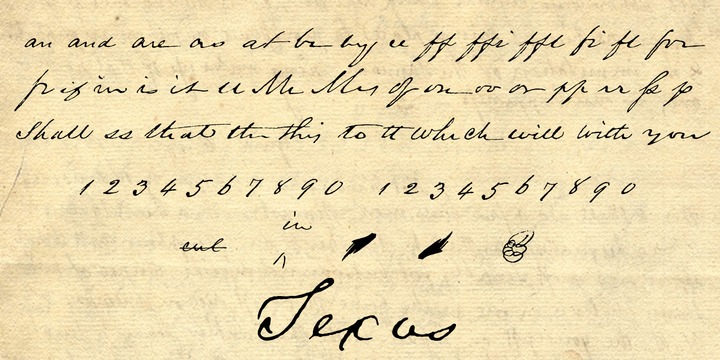 an and are as at be by ee ff ffi ffl fi fl for
fr if in is it ll Mr Mrs of on oo or pp rr ss
Shall ss that the this to tt which will with you
1 2 3 4 5 6 7 8 9 0 1 2 3 4 5 6 7 8 9 0
in
cut
Texas